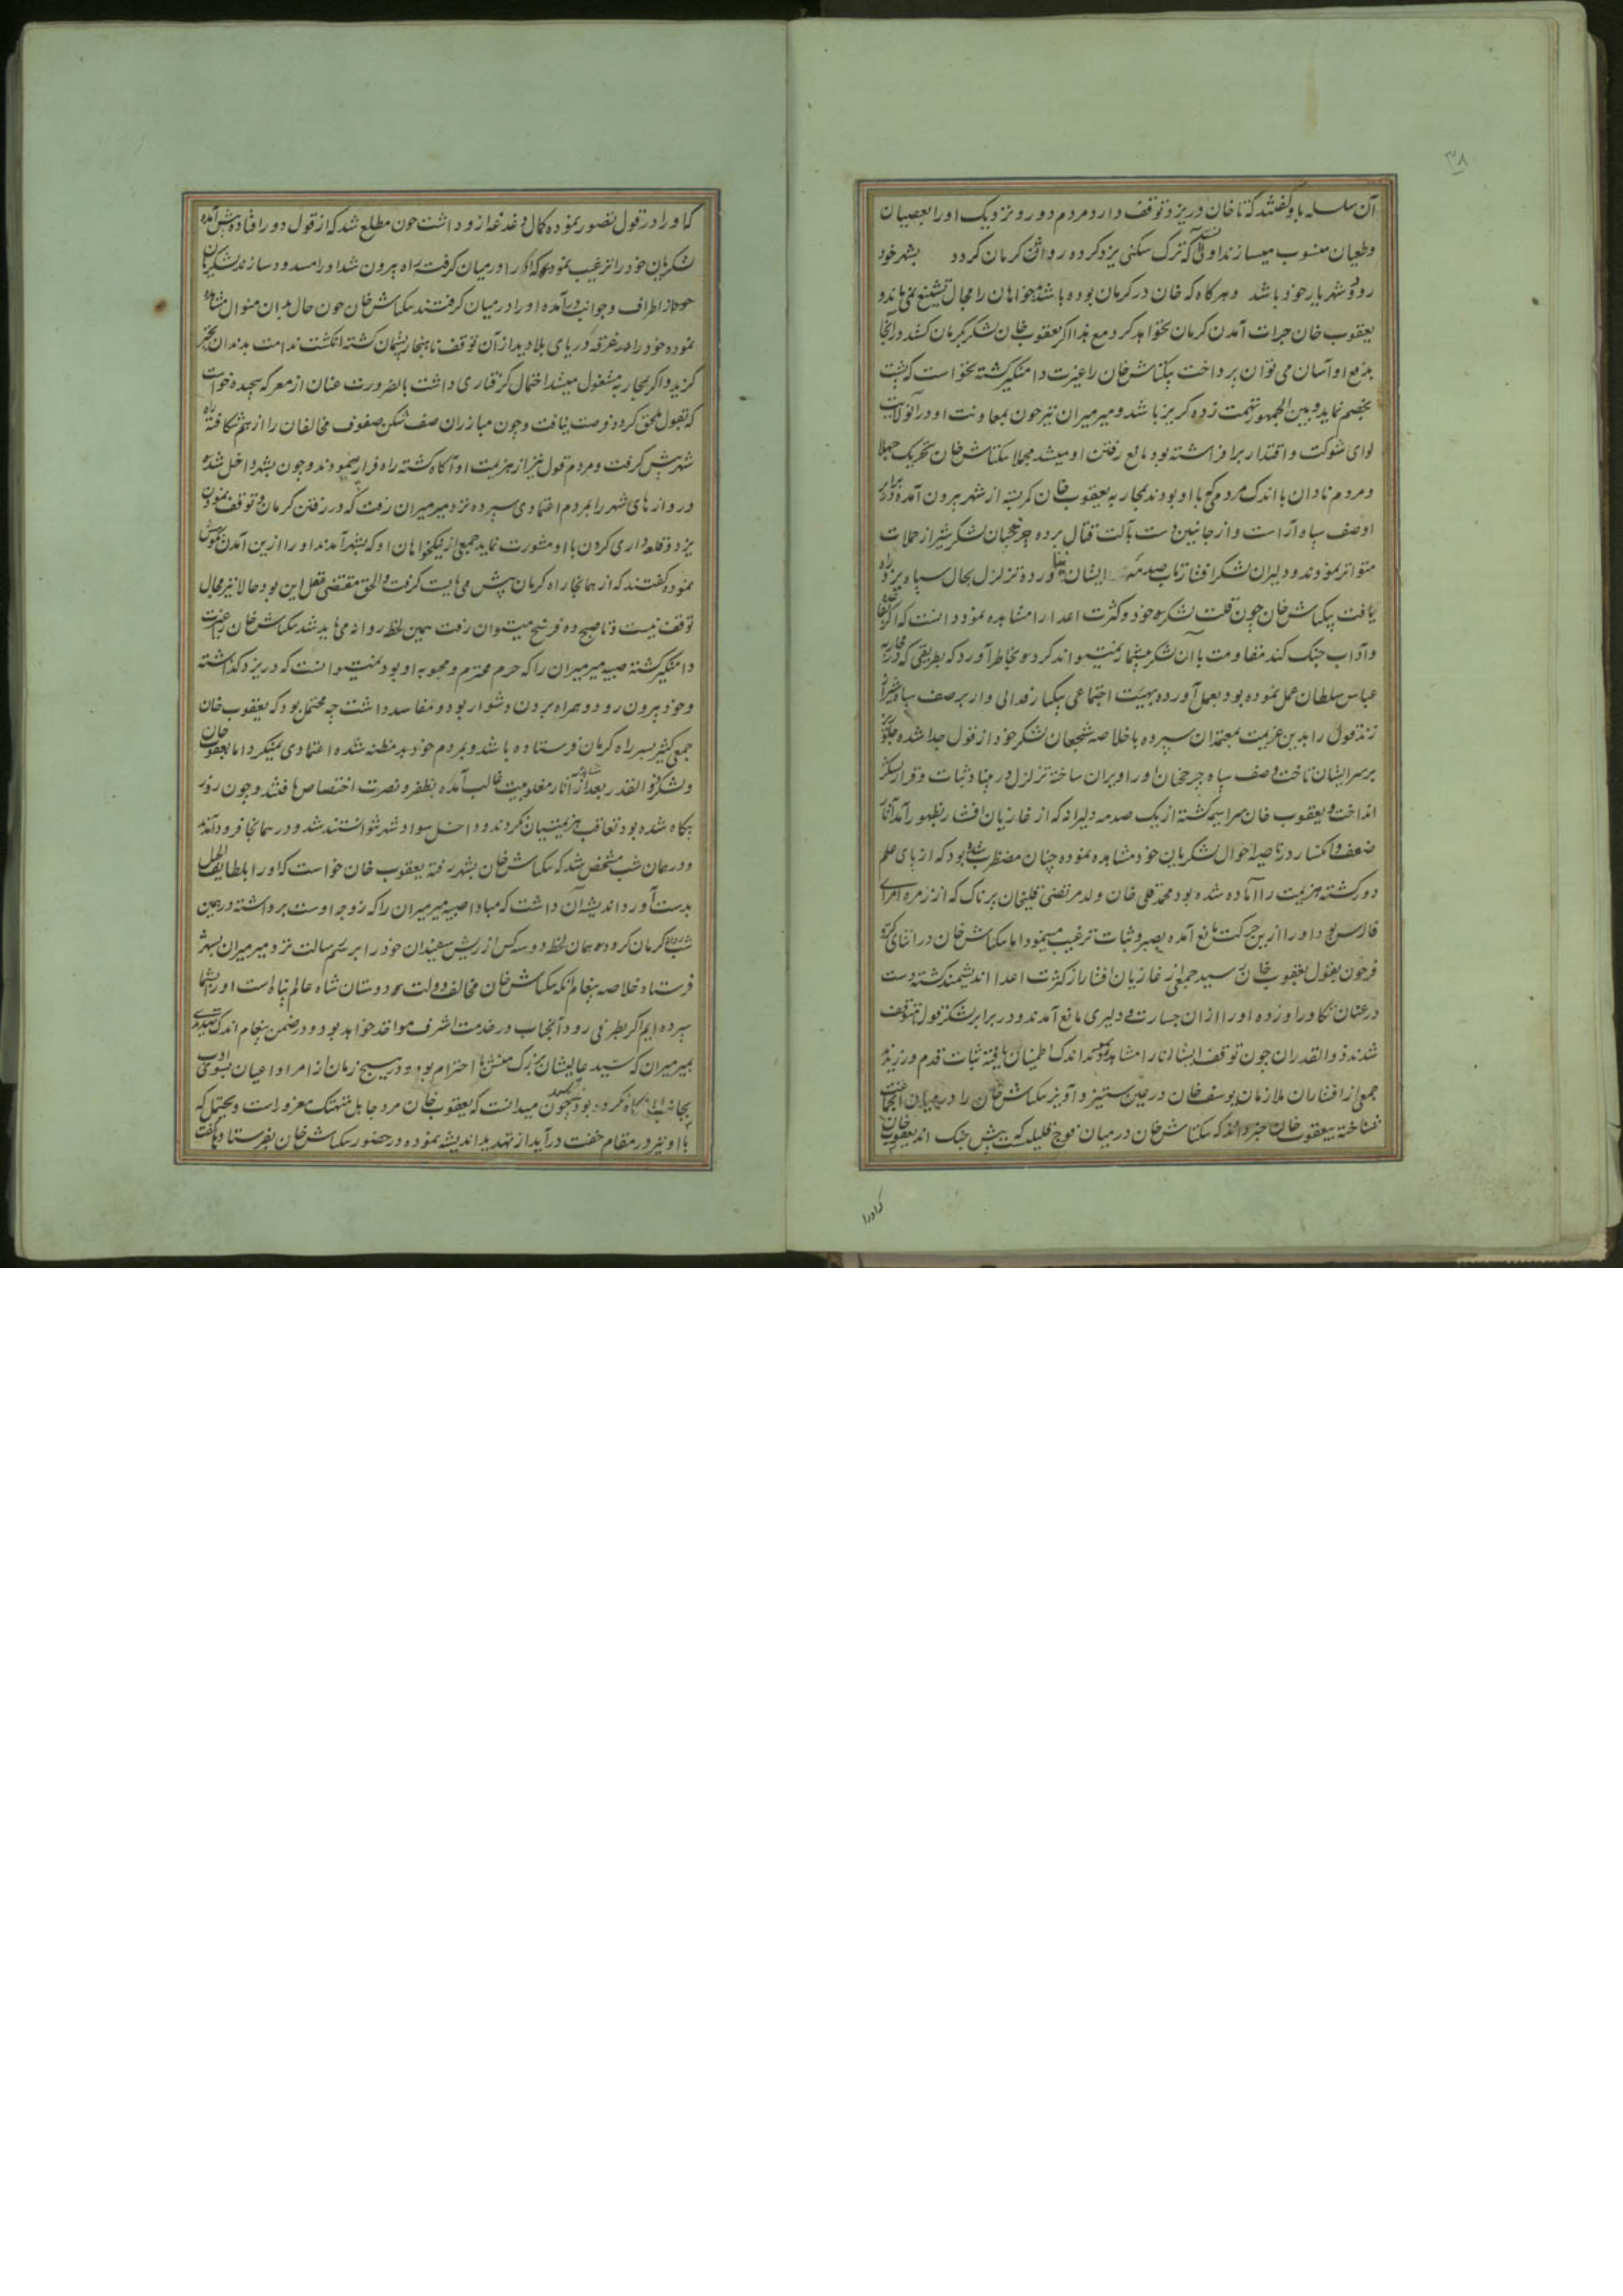 ۳۸
آن سلسله باو گفتند که تا خان در یزد توقف دارد مردم دور و نزدیک او را بعصیان
و طغیان منسوب میسازند اولی آنست که ترک سکنی یزد کرده روانه کرمان کردد بشهر خود
رود و شهریار خود باشد و هرکاه که خان در کرمان بوده باشد بدخواهان را مجال تشنیع نمی ماند و
یعقوب خان جرات آمدن کرمان نخواهد کرد مع هذا اکر یعقوب خان لشکر بکرمان کشد در آنجا
بدفع او آسان می توان پرداخت بیکتاش خان را غیرت دامنکیر کشته نخواست که پشت
بخصم نماید و بین الجمهور بتهمت زده کریز باشد و میرمیران نیز چون بمعاونت او در آنولایت
لوای شوکت و اقتدار برافراشته بود مانع رفتن او میشد مجملا بیکتاش خان بتحریک جهلا
و مردم نادان با اندک مردمی که با او بودند بمحاربه یعقوب خان کمر بسته از شهر بیرون آمده در برابر
او صف سپاه آراست و از جانبین دست بآلت قتال برده چرخچیان لشکر شیراز حملات
متواتر نمودند و دلیران لشکر افشار تاب صدمه ایشان نیاورده تزلزل بحال سپاه یزد راه
یافت بیکتاش خان چون قلت لشکر خود و کثرت اعدا را مشاهده نمود دانست که اکر بقاعده
و آداب جنک کند مقاومت با آن لشکر بیشمار نمیتواند کرد و بخاطر آورد که بطریقی که در محاربه
عباس سلطان عمل نموده بود بعمل آورده بهیئت اجتماعی یکبار فدائی وار بر صف سپاه شیراز
زند قول را بدین عزیمت بمعتمدان سپرده با خلاصه شجعان لشکر خود از قول جدا شده جلوریز
بر سر ایشان تاخت و صف سپاه چرخچیان او را ویران ساخته تزلزل در بنای ثبات و قرار لشکر
انداخت و یعقوب خان سراسیمه کشته از یک صدمه دلیرانه که از غازیان افشار بظهور آمد آثار
ضعف و انکسار در ناصیه احوال لشکریان خود مشاهده نموده چنان مضطرب شده بود که از پای علم
دور کشته هزیمت را آماده شده بود محمد قلی خان ولد مرتضی قلیخان پرناک که از زمره امرای
فارس بود او را ازین حرکت مانع آمده بصبر و ثبات ترغیب مینمود اما بیکتاش خان در اثنای کر و
فر چون بقول یعقوب خان رسید جمعی از غازیان افشار از کثرت اعدا اندیشمند کشته دست
در عنان تکاور او زده او را از آن جسارت و دلیری مانع آمدند و در برابر لشکر قول متوقف
شدند ذوالقدران چون توقف ایشانرا مشاهده نمودند اندک اطمینان یافته ثبات قدم ورزیدند
جمعی از افشاران ملازمان یوسف خان در عین ستیز و آویز بیکتاش خان را در میان آنجماعت
شناخته بیعقوب خان خبر دادند که بیکتاش خان در میان فوج قلیلیست که پیش جنک اند یعقوب خان
که او را
که او را در قول تصور نموده کمال دغدغه ازو داشت چون مطلع شد که از قول دور افتاده پیش آمده
لشکریان خود را ترغیب نموده که او را در میان کرفته راه بیرون شد او را مسدود سازند لشکریان
از اطراف و جوانب درآمده او را در میان کرفتند بیکتاش خان چون حال بدان منوال مشاهده
نموده خود را در غرقه دریای بلا دید از آن توقف نابهنجار پشیمان کشته انکشت ندامت بدندان تحیر
کزید و اکر بمحاربه مشغول میشد احتمال کرفتاری داشت بالضرورت عنان از معرکه پیچیده خواست
که بقول ملحق کردد فرصت نیافت و چون مبارزان صف شکن صفوف مخالفان را از هم شکافته راه
شهر پیش کرفت و مردم قول نیز از هزیمت او آکاه کشته راه فرار پیمودند و چون بشهر داخل شده
دروازهای شهر را بمردم اعتمادی سپرده نزد میرمیران رفت که در رفتن کرمان و توقف نمودن
یزد و قلعه داری کردن با او مشورت نماید جمعی از نیکخواهان او که بشهر آمدند او را ازین آمدن نکوهش
نموده کفتند که از همانجا راه کرمان پیش می بایست کرفت و الحق مقتضی عقل این بود حالا نیز مجال
توقف نیست و تا صبح ده فرسخ میتوان رفت همین لحظه روانه می باید شد بیکتاش خان را غیرت
دامنکیر کشته صبیه میرمیران را که حرم محترم و محبوبه او بود نمیتوانست که در یزد کذاشته
و خود بیرون رود و همراه بردن دشوار بود و مفاسد داشت چه محتمل بود که یعقوب خان
جمعی کثیر بسر راه کرمان فرستاده باشد و بمردم خود بد مظنه شده اعتمادی نمیکرد اما یعقوب خان
و لشکر ذوالقدر بعد از مشاهده آثار مغلوبیت غالب آمده بظفر و نصرت اختصاص یافتند و چون روز
بیکاه شده بود تعاقب هزیمتیان نکردند و داخل سواد شهر نتوانستند شد و در همانجا فرود آمدند
و در همان شب مشخص شد که بیکتاش خان بشهر رفته یعقوب خان خواست که او را بلطایف الحیل
بدست آورد اندیشه آن داشت که مبادا صبیه میرمیران را که زوجه اوست برداشته در همین
شب روانه کرمان کردد همان لحظه دو سه کس از ریش سفیدان خود را برسم رسالت نزد میرمیران بشهر
فرستاد خلاصه پیغام آنکه بیکتاش خان مخالف دولت دوستان شاه عالم پناه است او را بشما
سپرده ایم اکر بطرفی رود آنجناب در خدمت اشرف مواخذ خواهد بود و در ضمن پیغام اندک تهدیدی
بمیرمیران که سید عالیشان بزرک منش با احترام بود و در هیچ زمان از امرا و اعیان بی ادبی
بجانب او نکاه نکرده بود چون میدانست که یعقوب خان مرد جاهل متهتک مغرور است و یحتمل که
با او نیز در مقام خفت درآید از تهدید اندیشه نموده در حضور بیکتاش خان بفرستاده کفت